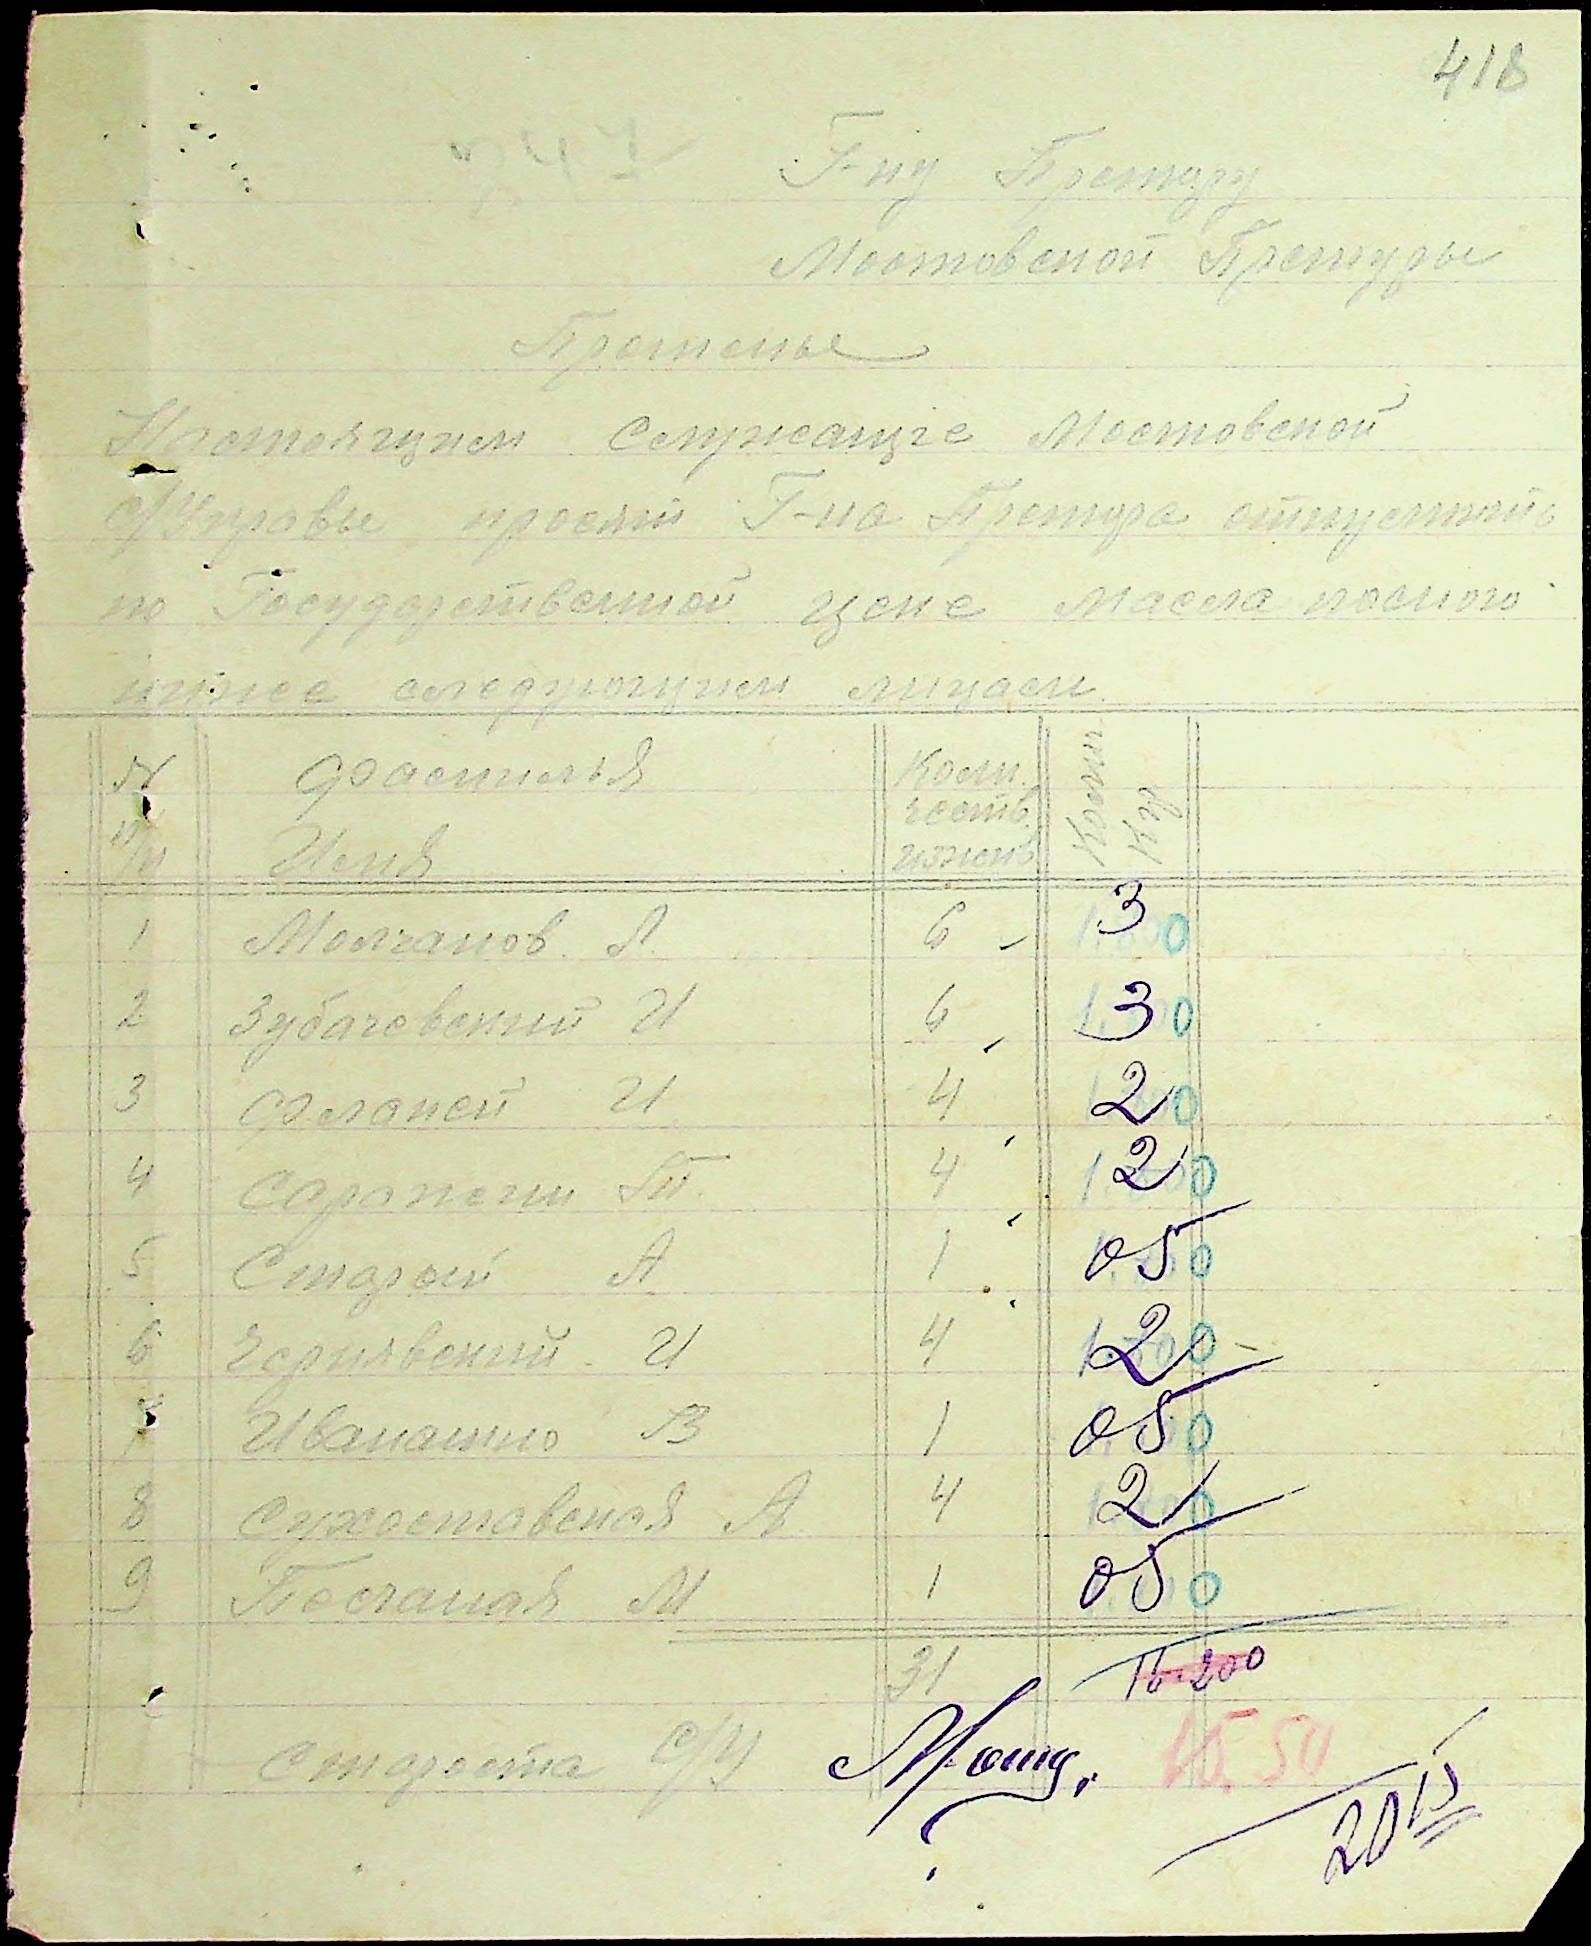 418
Г-ну Претору
Мостовской Претуры
Прошенье
Настоящим служащие Мостовской
с/Управы просят Г-на Претора отпустить
по Государственной цене масла посного
ниже следующим лицам
N п/п Фамилья Имя Коли честв. иждив Колич Кгр
1 Молчанов А 6 3
2 Зубачевский И 6 3
3 Фланей И 4 2
4 Сарапени П. 4 2
5 Старый А 1 05
6 Чернявский И 4 2
7 Иванашко В 1 05
8 Сухоставская А 4 2
9 Песчаная М 1 05
31 16.200
Староста С/У 15.50
20 15